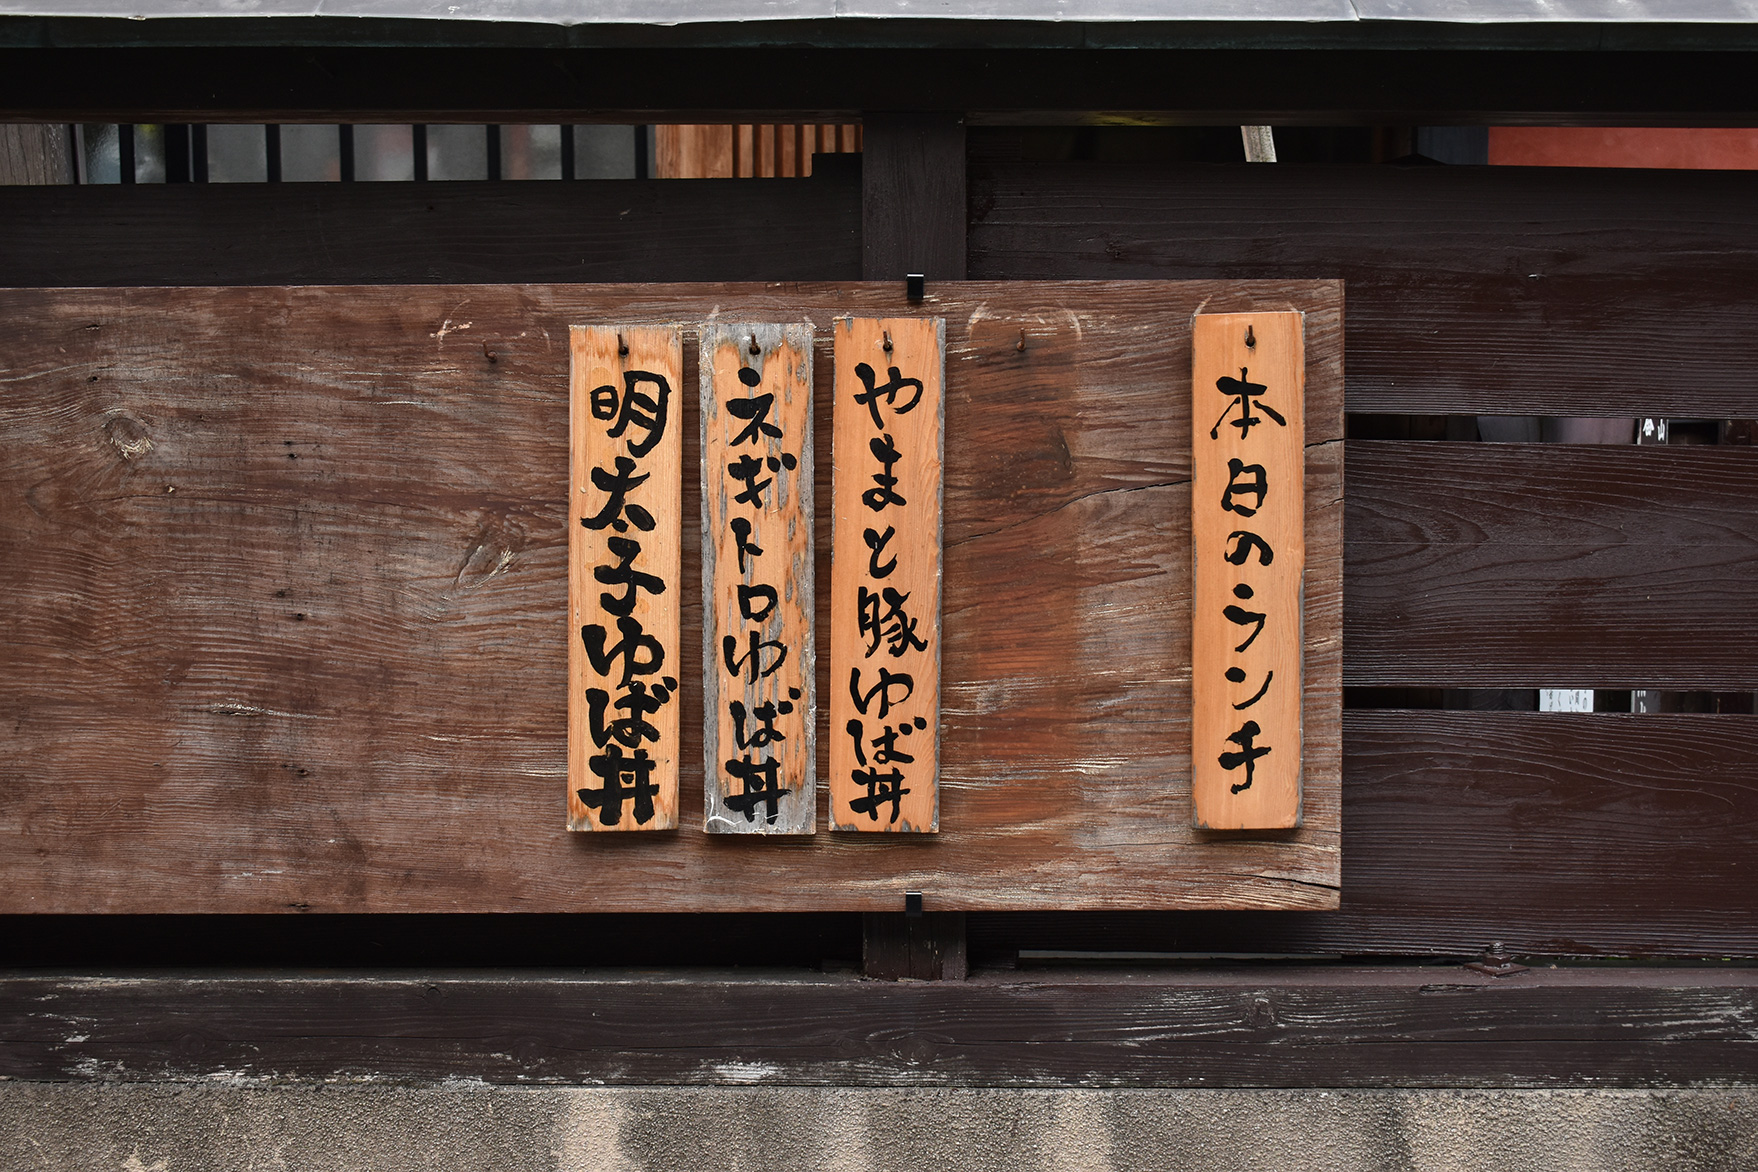 本日のランチ
やまと豚ゆば丼
ネギトロゆば丼
明太子ゆば丼